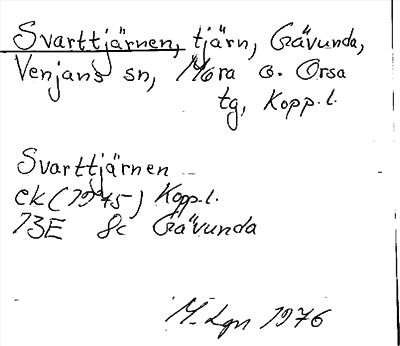 Svarttjärnen, tjärn, Gävunda,
Venjans sn, Mora o. Orsa
tg, Kopp.l.
Svarttjärnen
ek (1945) Kopp.l.
13E 8c Gävunda
M. Lgn 1976